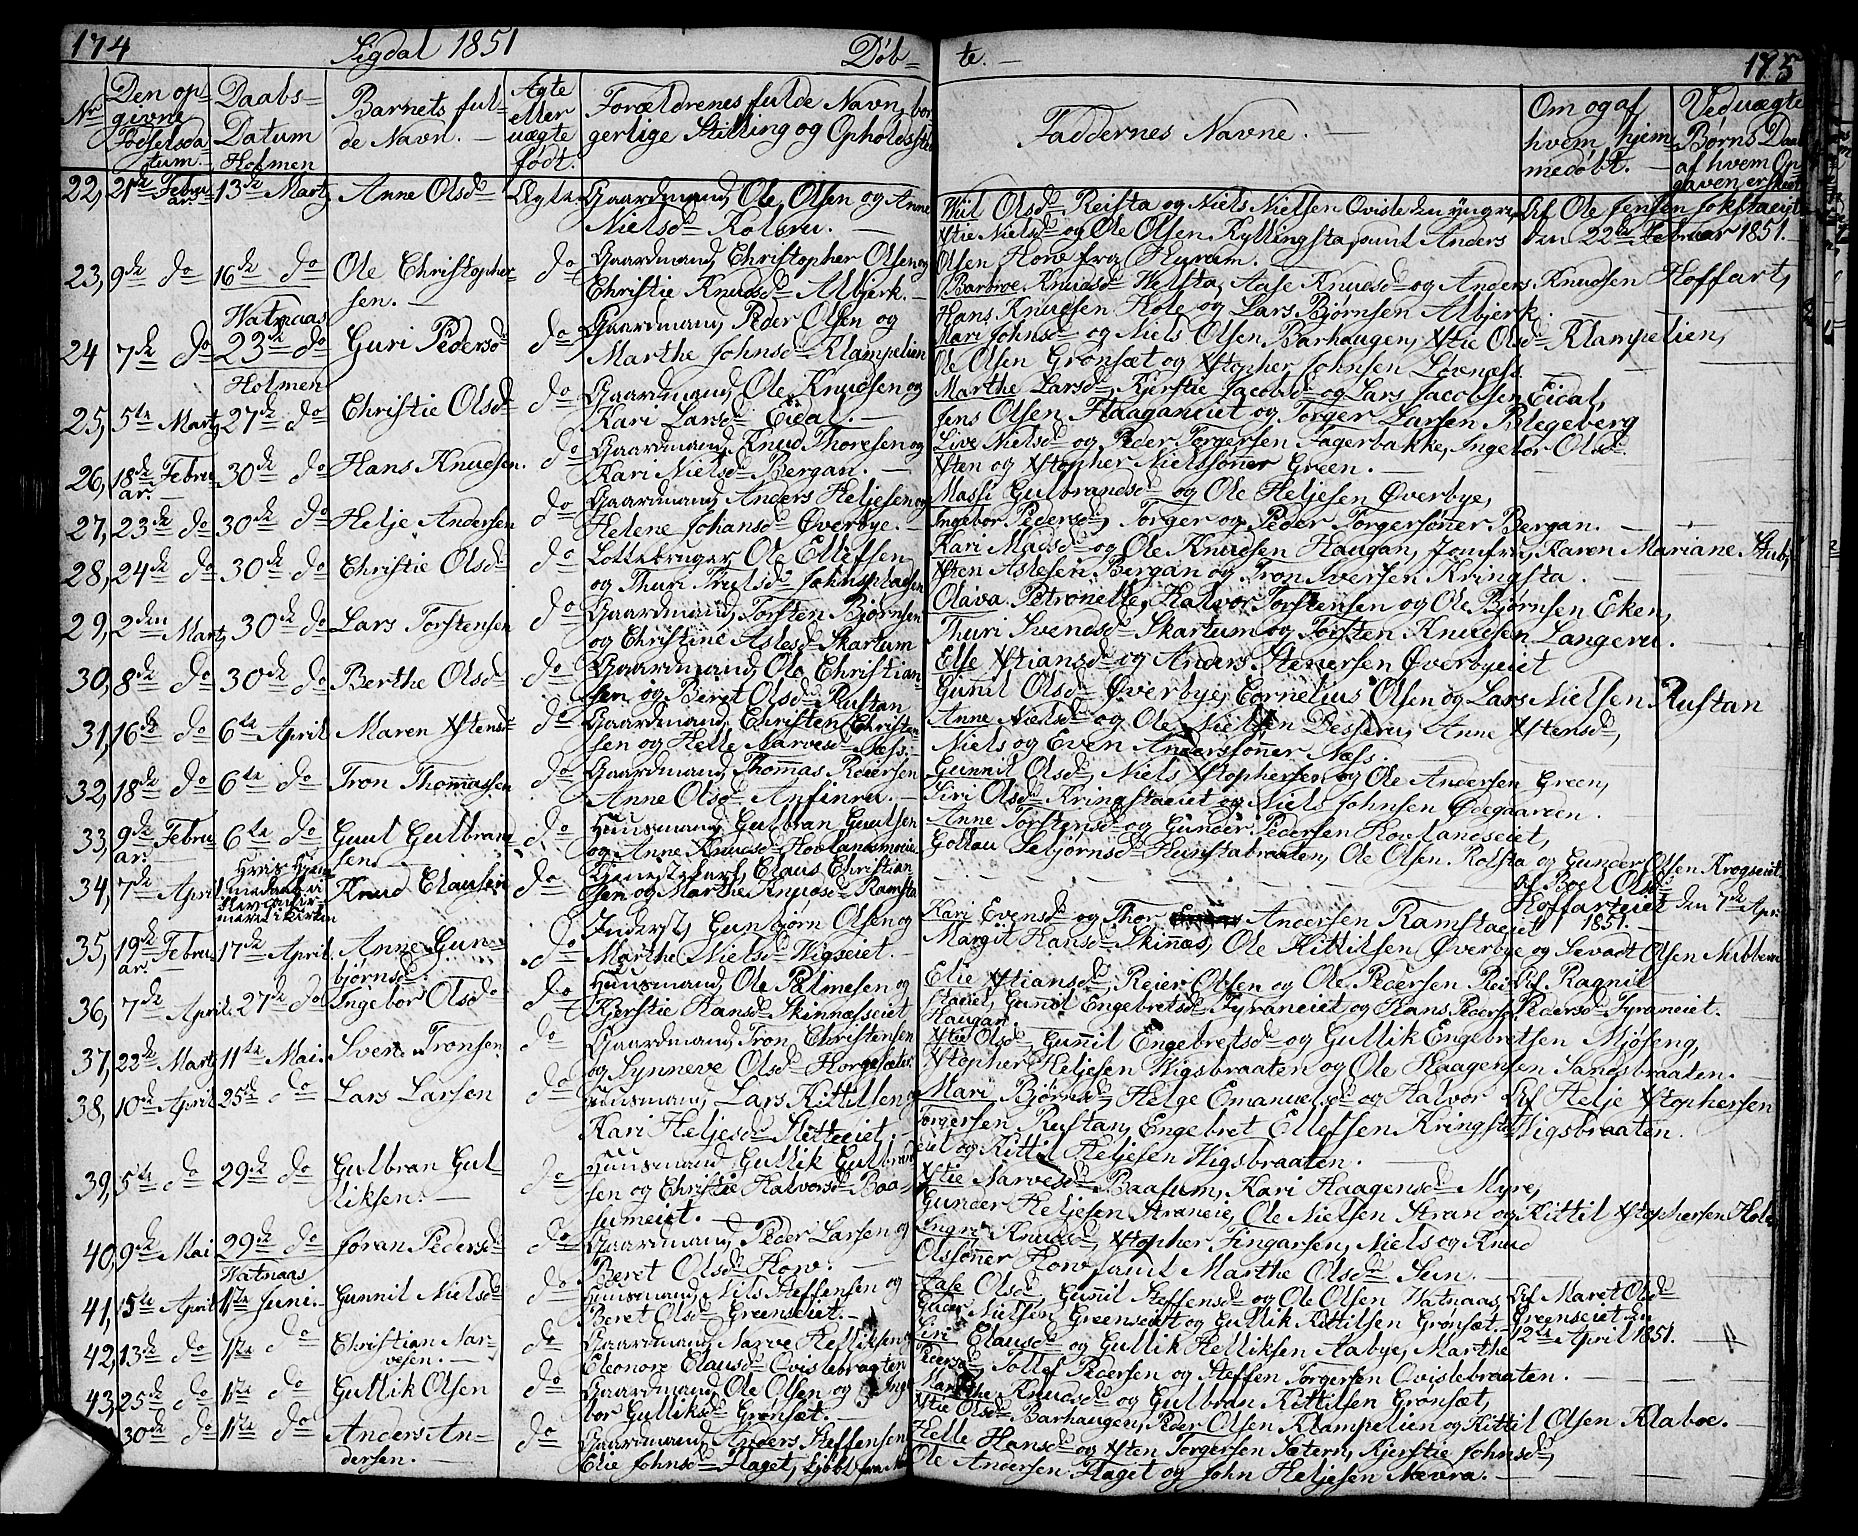 174 Sigdal 1851 Døb-
te. 175
No Den opgivne Fødselsdatum. Daabs-Datum Holmen Barnets fulde Navn. Ægte eller uægte født. Forældrenes fulde Navn, borgerlige Stilling og Opholdssted
Faddernes Navne. Om og af hvem hjemmedøbt. Ved uægte Børns Daab af hvem Opgaven er skeet
22, 21de Februar 13de Martz Anne Olsdr Ægte Gaardmand Ole Olsen og Anne
Nielsdr Kolsru.
Olsdr Reista og Niels Nielsen Qvisle den yngre Af Ole Jensen Jokstadeiet
Xstie Nielsdr og Ole Olsen Kyllingsta, samt Anders den 22de Februar 1851.
Olsen Horv fra Hurum.
23, 9de do 16de do Ole Christopher-
sen. do Gaardmand Christopher Olsen og
Christie Knudsdr Albjerk.
Barbroe Knudsdr Welsta, Aase Knudsdr og Anders Knudsen Hoffart,
Hans Knudsen Hole og Lars Bjørnsen Albjerk.
Watnaas
24 7de do 23de do Guri Pedersdr do Gaardmand Peder Olsen og
Marthe Johnsdr Klampelien
Mari Johnsdr og Niels Olsen Barhaugen, Xstie Olsdr Klampelien,
Ole Olsen Grønsæt og Xstopher Johnsen Løvnæss.
Holmen
25, 5te Martz 27de do Christie Olsdr do Gaardmand Ole Knudsen og
Kari Larsdr Eidal.
Marthe Larsdr, Kjerstie Jacobsdr og Lars Jacobsen Eidal,
Jens Olsen Haaganeiet og Torger Larsen Blegeberg
26, 18de Februar. 30de do Hans Knudsen. do Gaardmand Knud Thoresen og
Kari Nielsdr Bergan.
Live Nielsdr og Peder Torgersen Fagerbakke, Ingebor Olsdr
Xsten og Xstopher Nielssønner Green.
27, 23de do 30de do Helje Andersen do Gaardmand Anders Heljesen og
Helene Johansdr Øverbye.
Massi Gulbrandsdr og Ole Heljesen Øverbye,
Ingebor Pedersdr, Torger og Peder Torgersønner Bergan.
28, 24de do 30de do Christie Olsdr do Ole Ellefsen
og Thuri Trulsdr Johnspladsen
Kari Madsdr og Ole Knudsen Haugan, Jomfru Karen Mariane Stub,
Xsten Aslesen Bergan og Tron Iversen Kringsta.
29, 2den Martz 30de do Lars Torstensen do Gaardmand Torsten Bjørnsen
og Christine Aslesdr Skartum
Olava Petronelle, Halvor Torstensen og Ole Bjørnsen Eken,
Thuri Svendsdr Skartum og Torsten Knudsen Langeru.
30, 8de do 30de do Berthe Olsdr do Gaardmand Ole Christian-
sen og Beret Olsdr Rustan
Else Xstiansdr og Anders Stenersen Øverbyeiet
Gunil Olsdr Øverbye, Cornelius Olsen og Lars Nielsen Rustan
31, 16de do 6te April Maren Xstensdr do Gaardmand Christen Christen-
sen og Helle Narvesdr Næss.
Anne Nielsdr og Ole Nielsen Desseru, Anne Xstensdr,
Niels og Even Anderssønner Næss.
32, 18de do 6te do Tron Thomassen do Gaardmand Thomas Reiersen
Anne Olsdr Anfinru.
Gunnil Olsdr, Niels Xstophersen og Ole Andersen Green,
Siri Olsdr Kringstaeiet og Niels Johnsen Ødegaarden.
33, 9de Februar. 6te do Guul Gulbrand-
sen. do Huusmand Gulbran Guulsen
og Anne Knudsdr Hovlandseiet
Anne Torstensdr og Gunder Pedersen Hovlandseiet,
Gollau Sebjørnsdr Hunstabraaten, Ole Olsen Rolsta og Gunder Olsen Krogseiet
34, 7de April Knud Clausen do Tjenestekarl Claus Christian-
sen og Marthe Knudsdr Ramsta
Af Boel Olsdr
Hoffarteiet den 7de April 1851.
35, 19de Februar. 17de April. Anne Gun-
bjørnsdr. do Inderst Gunbjørn Olsen og
Marthe Nielsdr Wigseiet.
Kari Evensdr og Thor Andersen Ramstaeiet
Margit Hansdr Skinæs, Ole Kittilsen Øverbye og Sevadt Olsen Nubberu
36, 7de April. 27de do Ingebor Olsdr do Huusmand Ole Palmesen og
Kjerstie Hansdr Skinnæsseiet
Elie Xstiansdr, Reier Olsen og Ole Pedersen Rei- Af Ragnil
staeiet, Gunil Engebretsdr Fyraneiet og Hans Peders. Pedersdr Fyraneiet.
Haugan
37, 22de Martz 11te Mai. Svend Tronsen. do Gaardmand Tron Christensen
og Synneve Olsdr Horgesæter.
Xstie Olsdr, Gunnil Engebretsdr og Gullik Engebretsen Mjøseng,
Xstopher Heljesen Wigsbraaten og Ole Haagensen Sandsbraaten.
38, 10de April 25de do Lars Larsen do Huusmand Lars Kittilsen og
Kari Heljesdr
Mari Bjørnsdr, Helge Emanuelsdr og Halvor Af Helje Xstophersen
Torgersen Rustan, Engebret Ellefsen Kringsta- Wigsbraaten.
eiet og Kittil Heljesen Wigsbraaten.
39, 5te do 29de do Gulbran Gul-
liksen. do Huusmand Gullik Gulbrand-
sen og Christie Halvorsdr Baa-
sumeiet.
Xstie Narvesdr Baasum, Kari Haagensdr Myre,
Gunder Heljesen Straneie, Ole Nielsen Stran og Kittil Xstophersen Hole,
40, 9de Mai 29de do Jøran Pedersdr do Gaardmand Peder Larsen og
Beret Olsdr Horv.
Ingri Knudsdr, Xstopher Fingarsen, Niels og Knud
Olssønner Horv samt Marthe Olsdr Sun.
Watnaas
41, 15te April 1ste Juni. Gunnil Nielsdr do Huusmand Nils Steffensen og
Beret Olsdr Greenseiet.
Aase Olsdr, Gunnil Steffensdr og Ole Olsen Watnaas, Af Maret Olsdr
Nielsen Greenseiet og Gullik Kittilsen Grønsæt. Greenseiet den
12te April 1851.
42, 13de do 1ste do Christian Nar-
vesen. do Gaardmand Narve Helliksen
Eleonore Clausdr Qvislebraaten
Siri Clausdr og Gullik Helliksen Aabye, Marthe
Pedersdr, Tollef Pedersen og Steffen Torgersen Qvislebraaten.
43, 25de do 1ste do Gullik Olsen do Gaardmand Ole Olsen og Inge-
bor Gulliksdr Grønsæt.
Marthe Knudsdr og Gulbran Kittilsen Grønsæt,
Xstie Olsdr Barhaugen, Peder Olsen Klampelien og Kittil Olsen Klaboe.
30de do 1ste do Anders An-
dersen. do Gaardmand Anders Steffensen
Elie Johnsdr Haget,
Helle Hansdr og Xsten Torgersen Sætern, Kjerstie Johnsdr,
Ole Andersen Haget og John Heljesen Nævra.